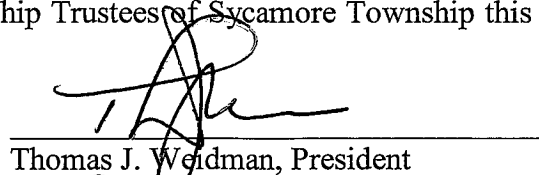 hip Trustees of Sycamore Township this
Thomas J. Weidman, President